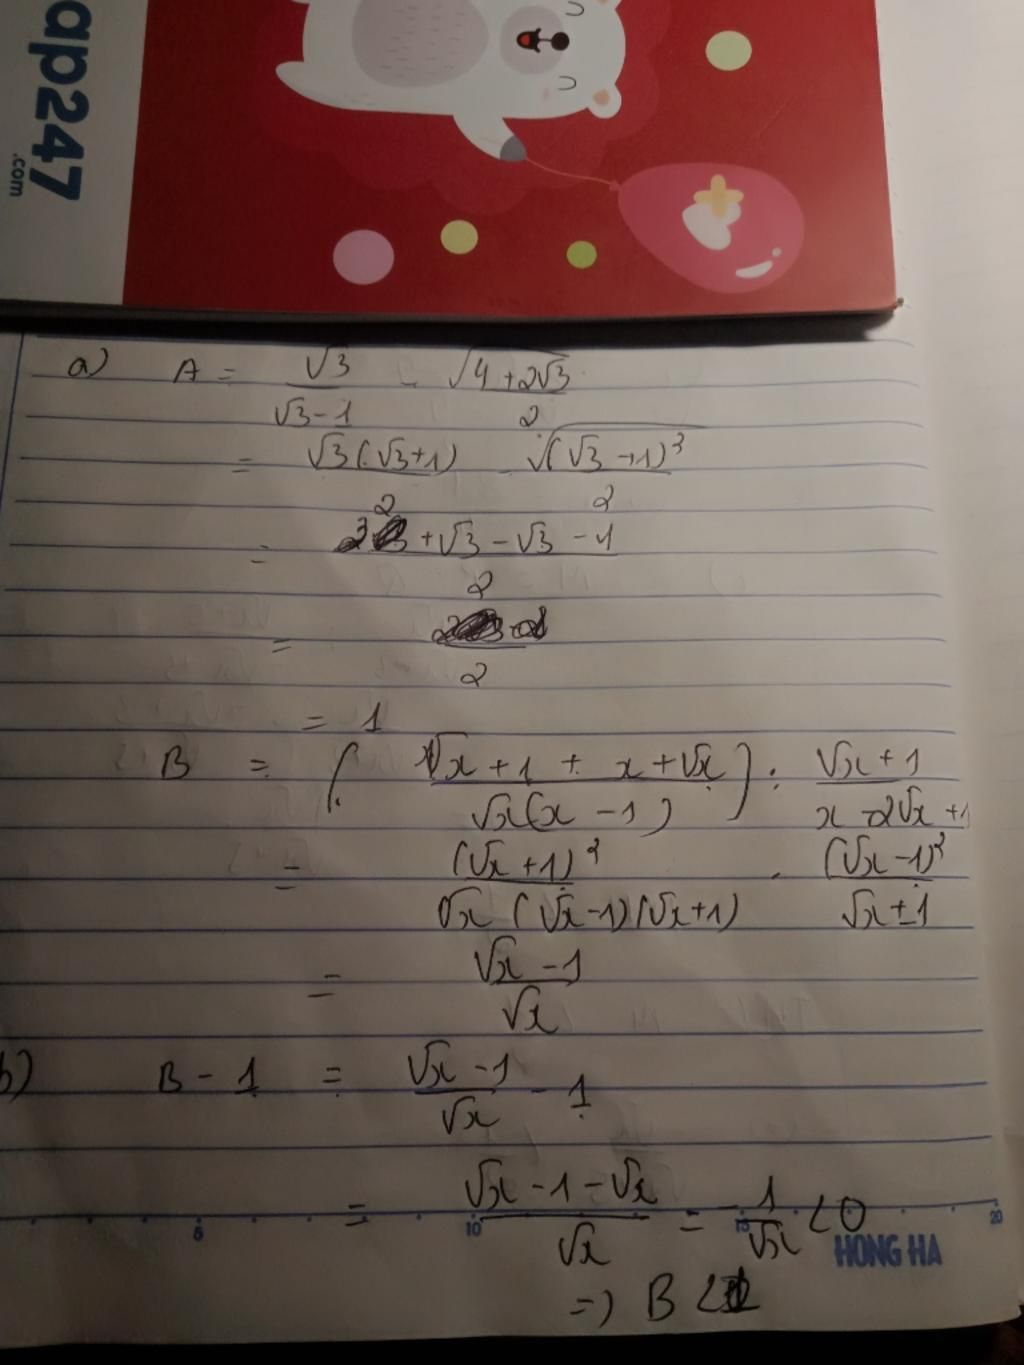 ap247
.com
a) A = √3/(√3-1) - √(4+2√3)/2
= √3(√3+1)/2 - √((√3+1)²)/2
= (3+√3-√3-1)/2
= /2
= 1
B = ( (√x+1+x+√x)/(√x(x-1)) ) : (√x+1)/(x-2√x+1)
= (√x+1)²/(√x(√x-1)(√x+1)) . (√x-1)²/(√x+1)
= (√x-1)/√x
b) B-1 = (√x-1)/√x - 1
= (√x-1-√x)/√x = -1/√x <0
5 10 15 20
HONG HA
=) B < 1